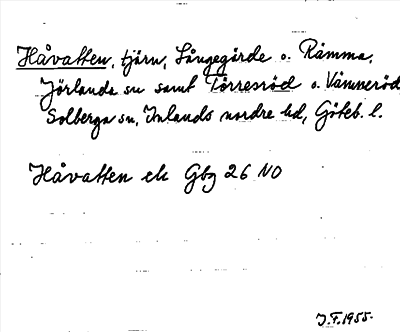 Håvatten, tjärn, Långegärde o. Rämma,
Jörlanda sn samt Torresröd o. Vämneröd
Solberga sn, Inlands nordre hd, Göteb. l.
Håvatten ek Gbg 26 NO
J.F. 1955.